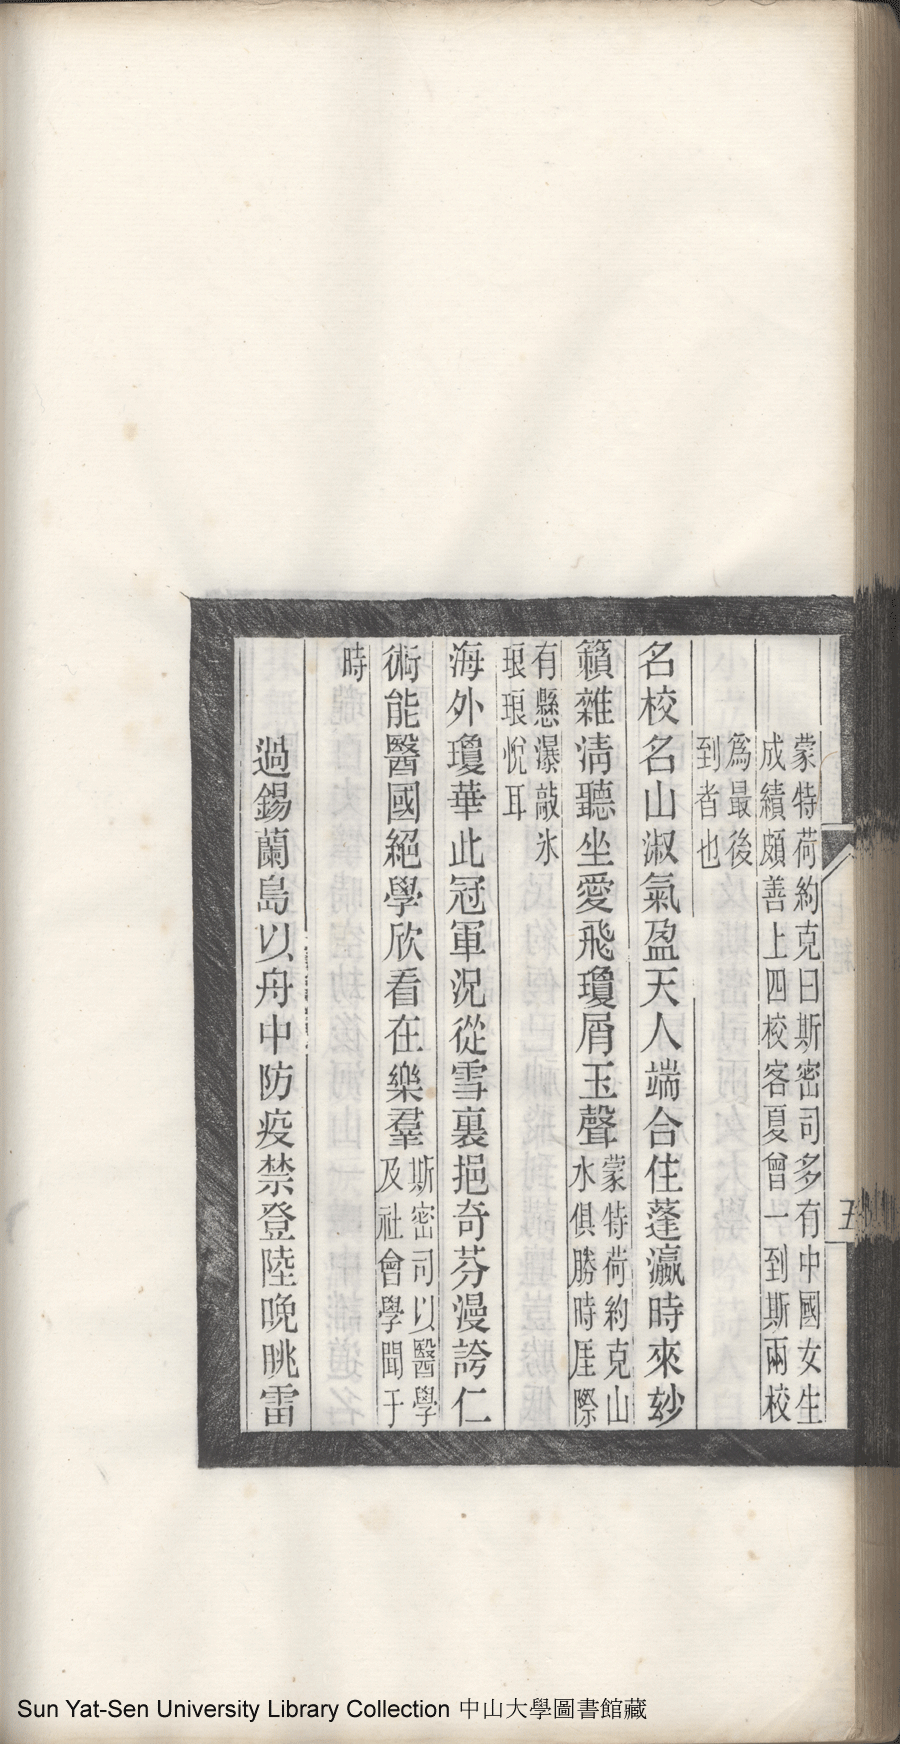 蒙特荷約克曰斯密司多有中國女生
成績頗善上四校客夏曾一到斯兩校
爲最後
到者也
名校名山淑氣盈天人端合住蓬瀛時來玅
籟雜淸聽坐愛飛瓊屑玉聲蒙特荷約克山
水俱勝時厓際
有懸瀑敲氷
琅琅悅耳
海外瓊華此冠軍況從雪裏挹奇芬漫誇仁
術能醫國絕學欣看在樂羣斯密司以醫學
及社會學聞于
時
過錫蘭島以舟中防疫禁登陸晚眺雷
五
Sun Yat-Sen University Library Collection 中山大學圖書館藏